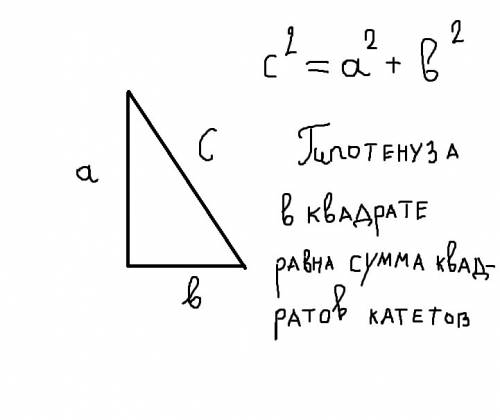 c² = a² + в²
a
C
в
Гипотенуза
в квадрате
равна сумма квад-
ратов катетов